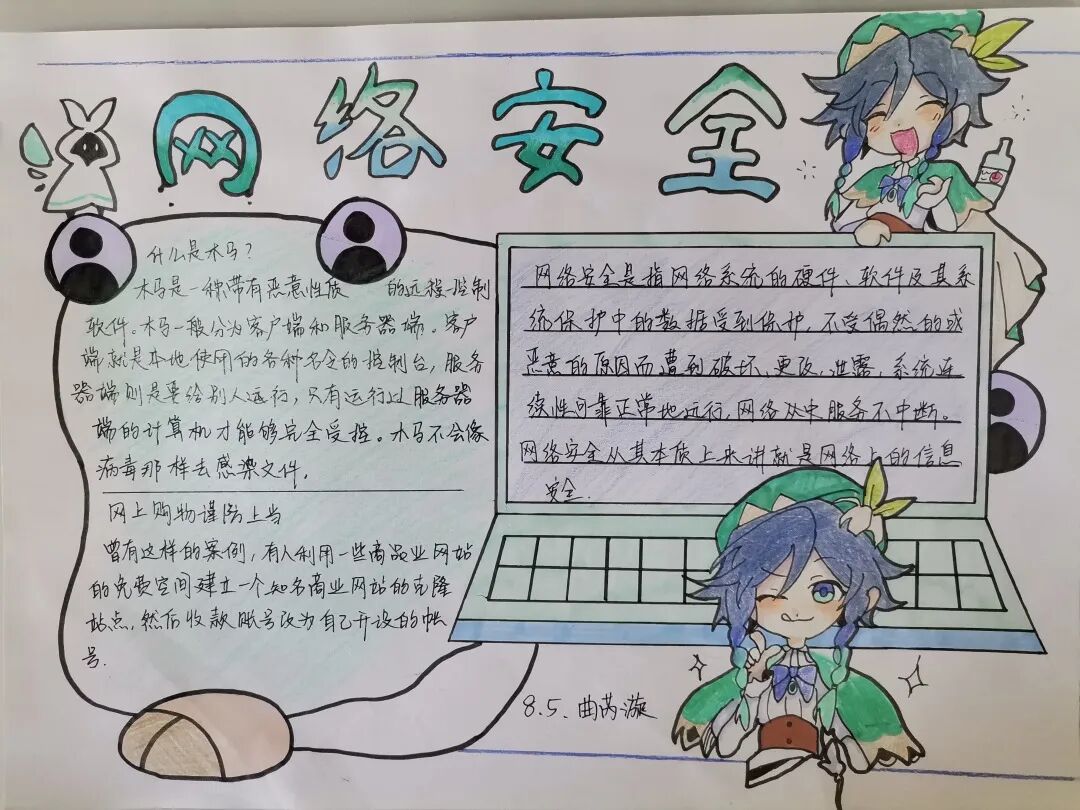 网络安全
什么是木马?
木马是一种带有恶意性质 的远程控制
软件。木马一般分为客户端和服务器端。客户
端就是本地使用的各种命令的控制台,服务
器端则是要给别人运行,只有运行过服务器
端的计算机才能够完全受控。木马不会像
病毒那样去感染文件.
网上购物谨防上当
曾有这样的案例,有人利用一些商品业网站
的免费空间建立一个知名商业网站的克隆
站点,然后收款账号改为自己开设的帐
号.
网络安全是指网络系统的硬件、软件及其系
统保护中的数据受到保护,不受偶然的或
恶意的原因而遭到破坏、更改、泄露,系统连
续性可靠正常地运行,网络从中服务不中断。
网络安全从其本质上来讲就是网络上的信息
安全.
8.5.曲芮漩